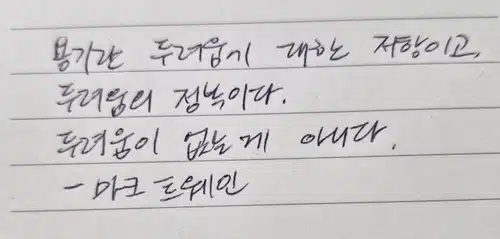 용기란 두려움에 대한 저항이고,
두려움의 정복이다.
두려움이 없는 게 아니다.
- 마크 트웨인